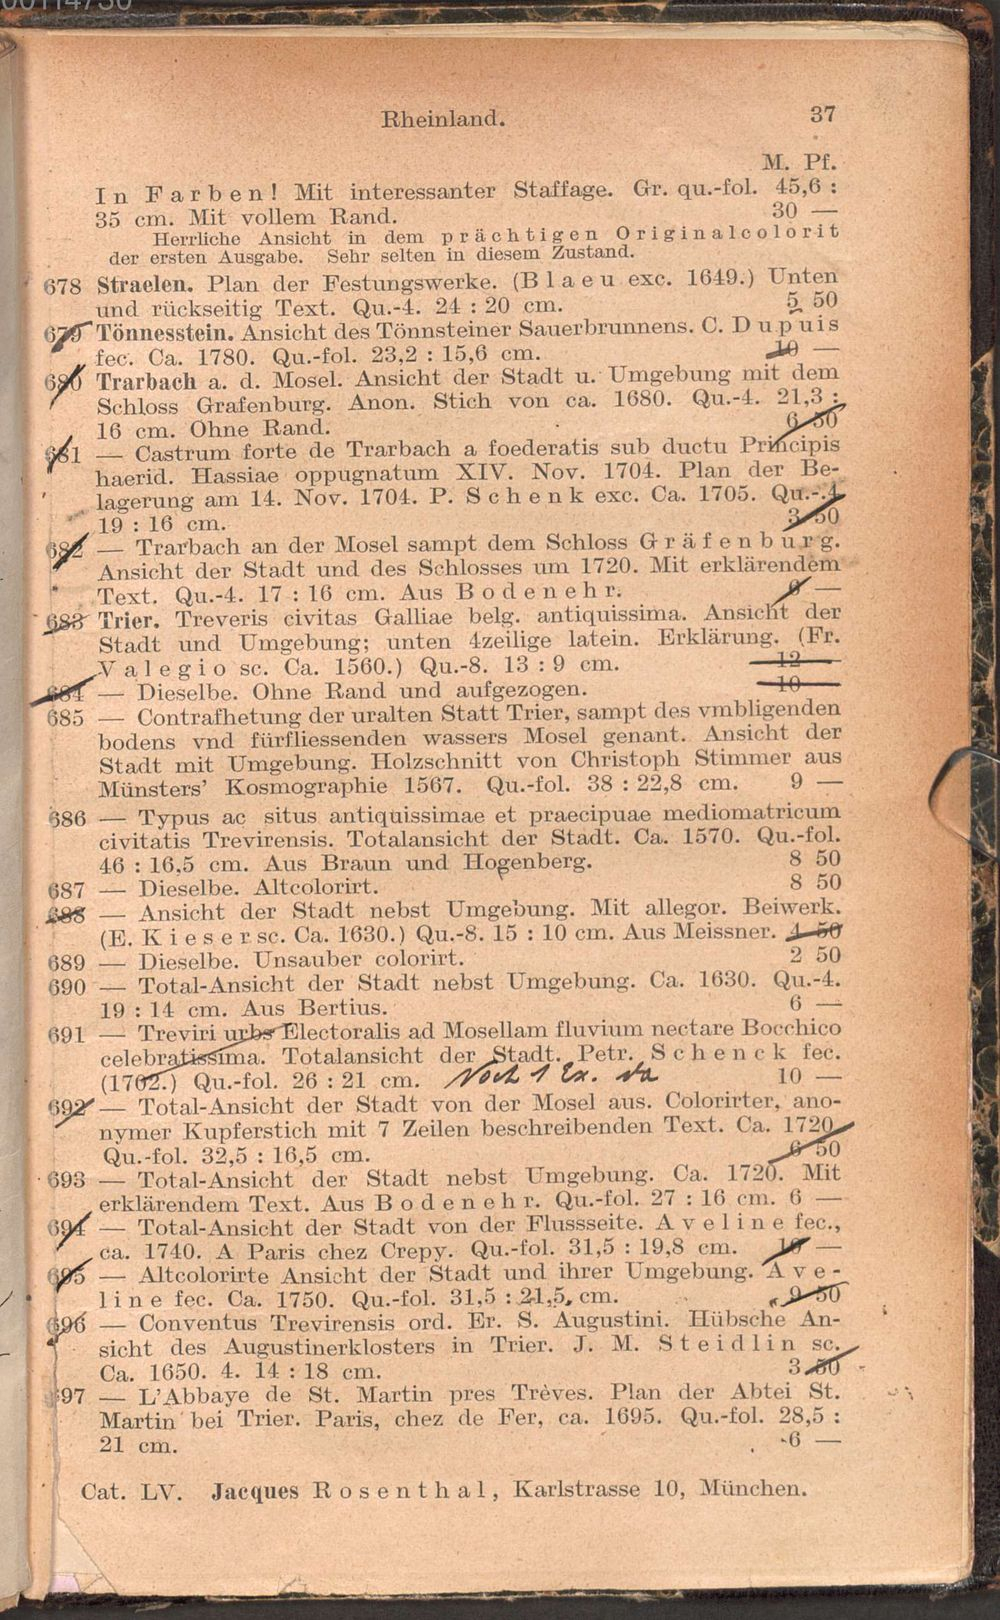 Rheinland. 37
M. Pf.
In Farben! Mit interessanter Staffage. Gr. qu.-fol. 45,6 :
35 cm. Mit vollem Rand. 30 —
Herrliche Ansicht in dem prächtigen Originalcolorit
der ersten Ausgabe. Sehr selten in diesem Zustand.
678 Straelen. Plan der Festungswerke. (Blaeu exc. 1649.) Unten
und rückseitig Text. Qu.-4. 24 : 20 cm. 5 50
679 Tönnesstein. Ansicht des Tönnsteiner Sauerbrunnens. C. Dupuis
fec. Ca. 1780. Qu.-fol. 23,2 : 15,6 cm. 10 —
680 Trarbach a. d. Mosel. Ansicht der Stadt u. Umgebung mit dem
Schloss Grafenburg. Anon. Stich von ca. 1680. Qu.-4. 21,3 :
16 cm. Ohne Rand. 6 50
681 — Castrum forte de Trarbach a foederatis sub ductu Principis
haerid. Hassiae oppugnatum XIV. Nov. 1704. Plan der Be-
lagerung am 14. Nov. 1704. P. Schenk exc. Ca. 1705. Qu.-4.
19 : 16 cm. 3 50
682 — Trarbach an der Mosel sampt dem Schloss Gräfenburg.
Ansicht der Stadt und des Schlosses um 1720. Mit erklärendem
Text. Qu.-4. 17 : 16 cm. Aus Bodenehr. 6 —
683 Trier. Treveris civitas Galliae belg. antiquissima. Ansicht der
Stadt und Umgebung; unten 4zeilige latein. Erklärung. (Fr.
Valegio sc. Ca. 1560.) Qu.-8. 13 : 9 cm. 12 —
684 — Dieselbe. Ohne Rand und aufgezogen. 10 —
685 — Contrafhetung der uralten Statt Trier, sampt des vmbligenden
bodens vnd fürfliessenden wassers Mosel genant. Ansicht der
Stadt mit Umgebung. Holzschnitt von Christoph Stimmer aus
Münsters' Kosmographie 1567. Qu.-fol. 38 : 22,8 cm. 9 —
686 — Typus ac situs antiquissimae et praecipuae mediomatricum
civitatis Trevirensis. Totalansicht der Stadt. Ca. 1570. Qu.-fol.
46 : 16,5 cm. Aus Braun und Hogenberg. 8 50
687 — Dieselbe. Altcolorirt. 8 50
688 — Ansicht der Stadt nebst Umgebung. Mit allegor. Beiwerk.
(E. Kieser sc. Ca. 1630.) Qu.-8. 15 : 10 cm. Aus Meissner. 4 50
689 — Dieselbe. Unsauber colorirt. 2 50
690 — Total-Ansicht der Stadt nebst Umgebung. Ca. 1630. Qu.-4.
19 : 14 cm. Aus Bertius. 6 —
691 — Treviri urbs Electoralis ad Mosellam fluvium nectare Bocchico
celebratissima. Totalansicht der Stadt. Petr. Schenck fec.
(1702.) Qu.-fol. 26 : 21 cm. Noch 1 Ex. da 10 —
692 — Total-Ansicht der Stadt von der Mosel aus. Colorirter, ano-
nymer Kupferstich mit 7 Zeilen beschreibenden Text. Ca. 1720
Qu.-fol. 32,5 : 16,5 cm. 6 50
693 — Total-Ansicht der Stadt nebst Umgebung. Ca. 1720. Mit
erklärendem Text. Aus Bodenehr. Qu.-fol. 27 : 16 cm. 6 —
694 — Total-Ansicht der Stadt von der Flussseite. Aveline fec.,
ca. 1740. A Paris chez Crepy. Qu.-fol. 31,5 : 19,8 cm. 10 —
695 — Altcolorirte Ansicht der Stadt und ihrer Umgebung. Ave-
line fec. Ca. 1750. Qu.-fol. 31,5 : 21,5, cm. 9 50
696 — Conventus Trevirensis ord. Er. S. Augustini. Hübsche An-
sicht des Augustinerklosters in Trier. J. M. Steidlin sc.
Ca. 1650. 4. 14 : 18 cm. 3 50
697 — L'Abbaye de St. Martin pres Trèves. Plan der Abtei St.
Martin bei Trier. Paris, chez de Fer, ca. 1695. Qu.-fol. 28,5 :
21 cm. 6 —
Cat. LV. Jacques Rosenthal, Karlstrasse 10, München.